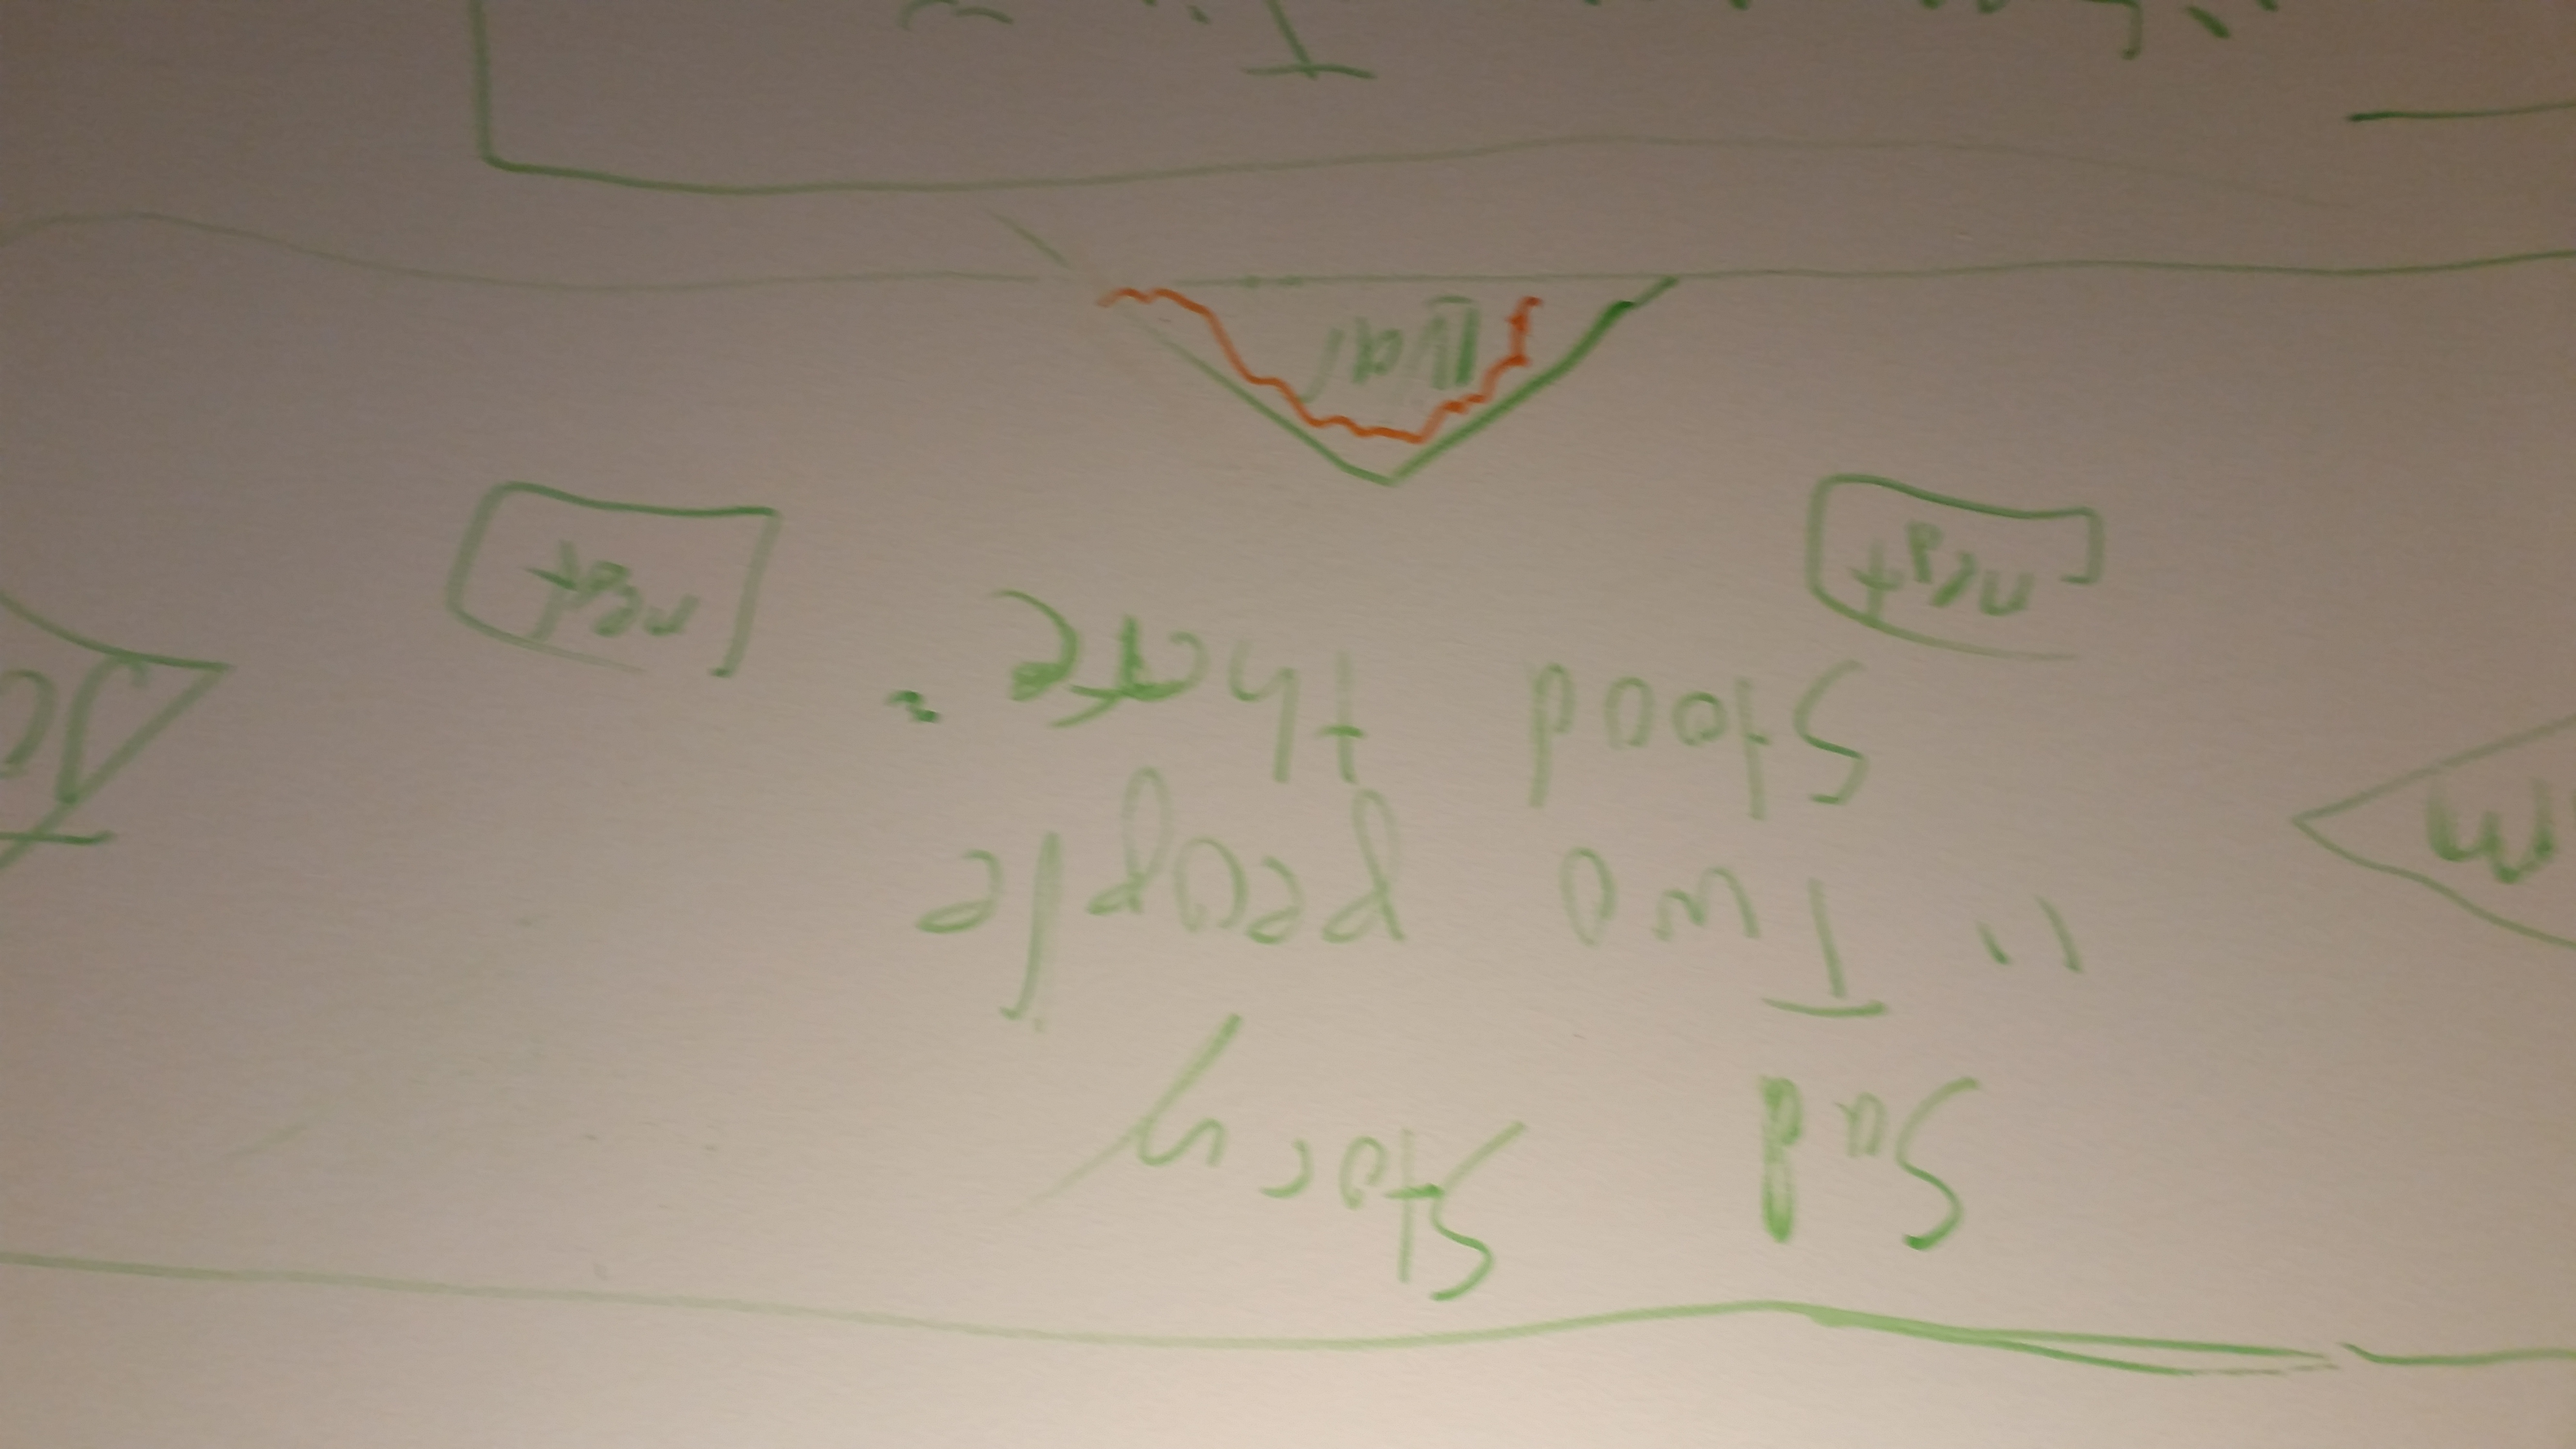 Sad Story
"Two people
Stood there"
nest rest
War
m